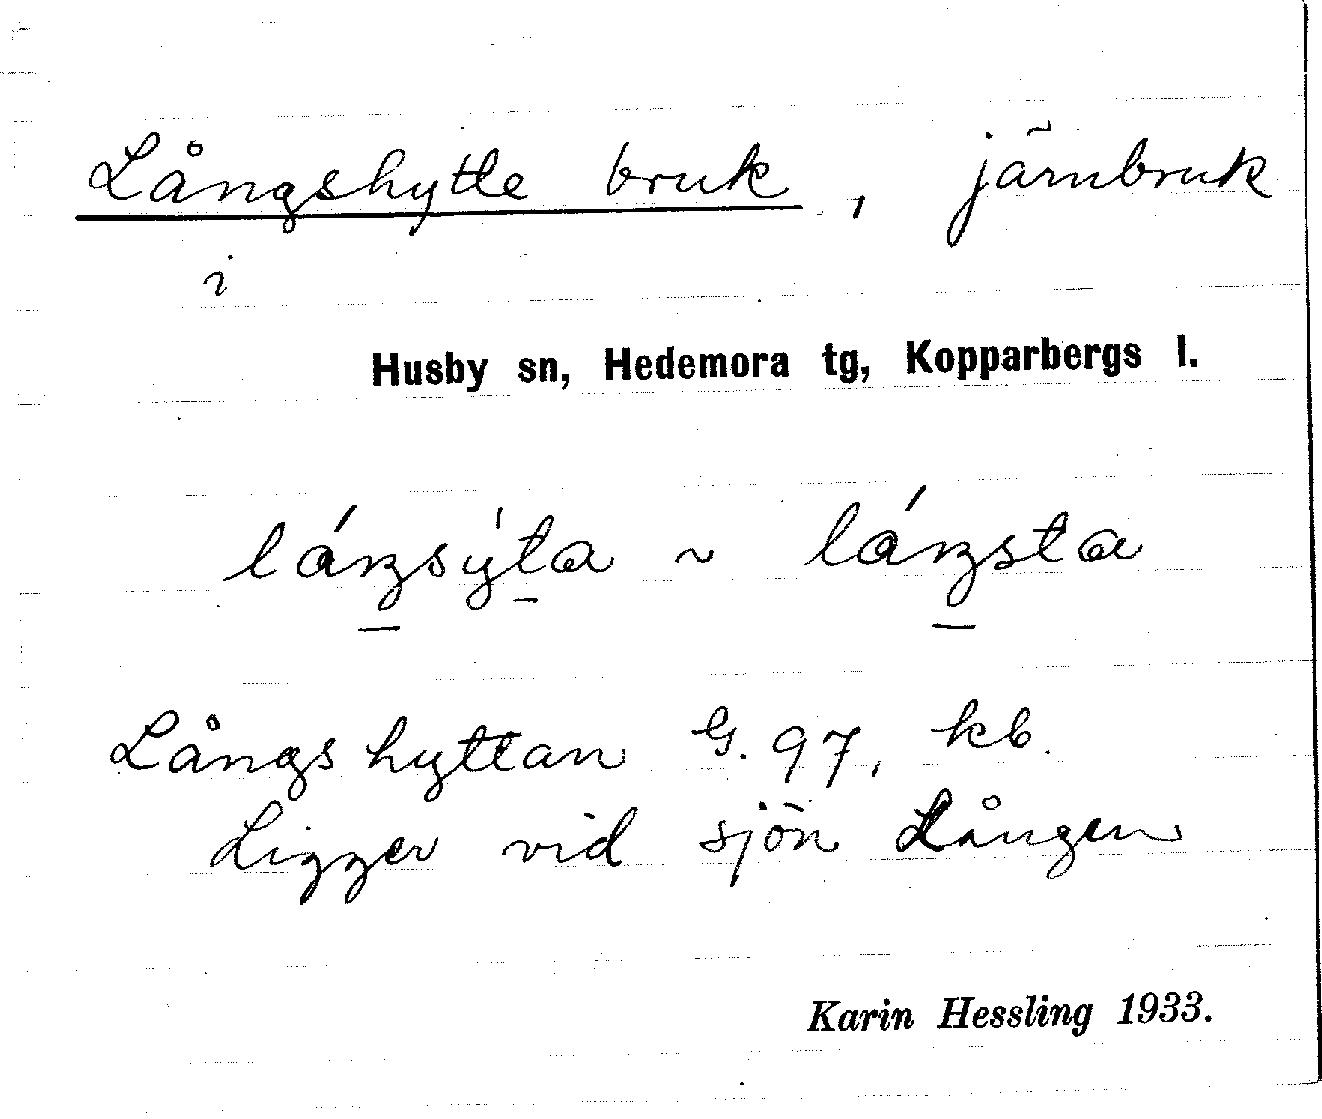 Långshytte bruk, järnbruk
i
Husby sn, Hedemora tg, Kopparbergs l.
láŋsýta ~ láŋsta
Långshyttan G. 97, kb.
Ligger vid sjön Lången
Karin Hessling 1933.